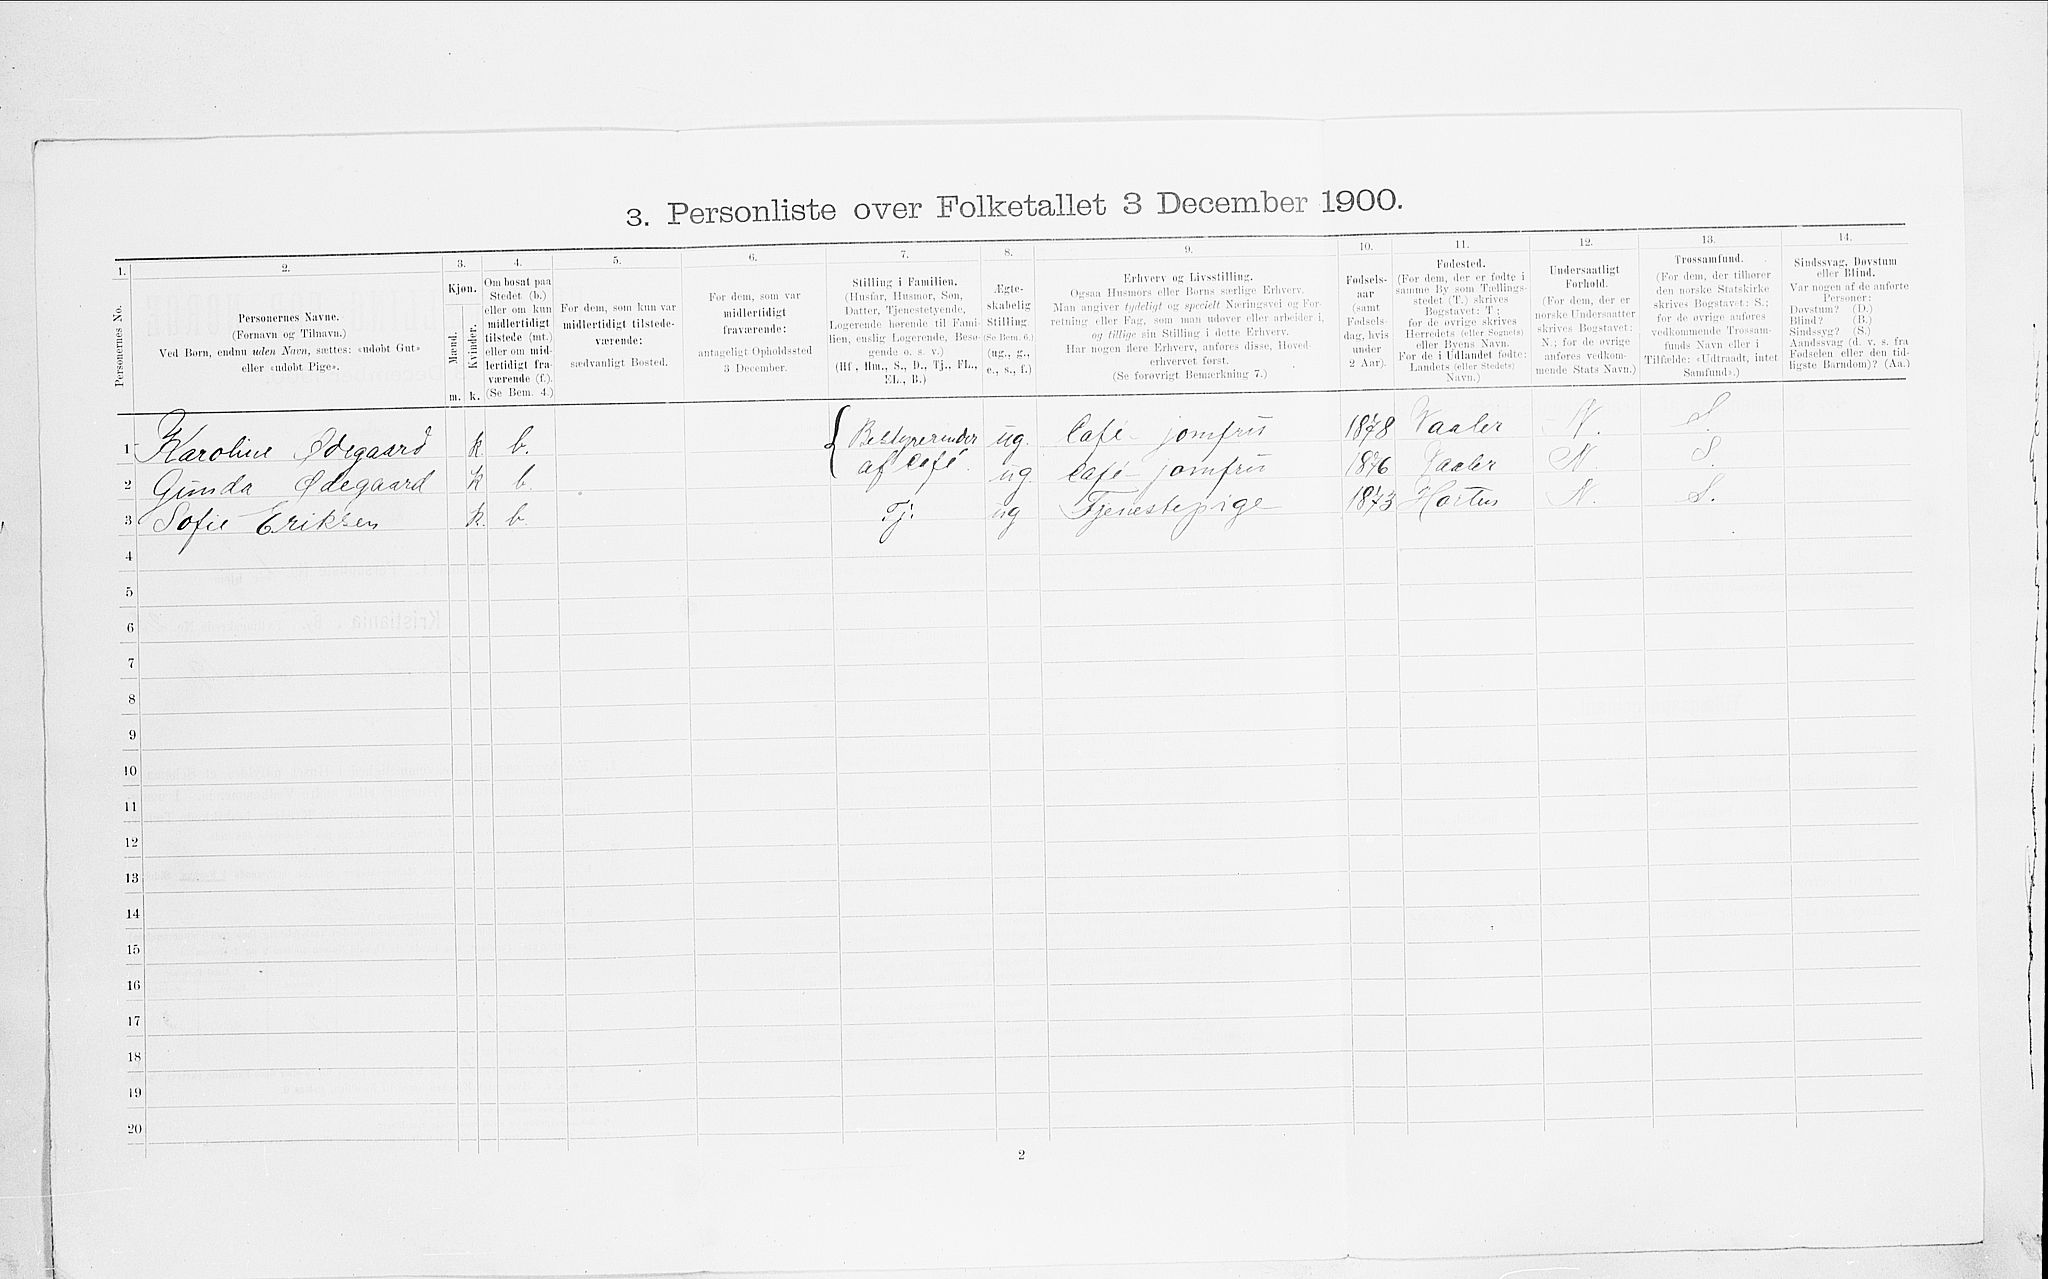 3. Personliste over Folketallet 3 December 1900.
1. 2. 3. 4. 5. 6. 7. 8. 9. 10. 11. 12. 13. 14.
Personernes No.
Personernes Navne.
(Fornavn og Tilnavn.)
Ved Børn, endnu uden Navn, sættes: «udøbt Gut»
eller «udøbt Pige».
Kjøn.
Mænd.
Kvinder.
m. k.
Om bosat paa
Stedet (b.)
eller om kun
midlertidigt
tilstede (mt.)
eller om mid-
lertidigt fra-
værende (f.).
(Se Bem. 4.)
For dem, som kun var
midlertidigt tilstede-
værende:
sædvanligt Bosted.
For dem, som var
midlertidigt
fraværende:
antageligt Opholdssted
3 December.
Stilling i Familien.
(Husfar, Husmor, Søn,
Datter, Tjenestetyende,
Logerende hørende til Fami-
lien, enslig Logerende, Besø-
gende o. s. v.)
(Hf., Hm., S., D., Tj., FL.,
EL., B.)
Ægte-
skabelig
Stilling.
(Se Bem. 6.)
(ug., g.,
e., s., f.)
Erhverv og Livsstilling.
Ogsaa Husmors eller Børns særlige Erhverv.
Man angiver tydeligt og specielt Næringsvei og For-
retning eller Fag, som man udøver eller arbeider i,
og tillige sin Stilling i dette Erhverv.
Har nogen flere Erhverv, anføres disse, Hoved-
erhvervet først.
(Se forøvrigt Bemærkning 7.)
Fødsels-
aar
(samt
Fødsels-
dag, hvis
under
2 Aar).
Fødested.
(For dem, der er fødte i
samme By som Tællings-
stedet (T.) skrives
Bogstavet: T.;
for de øvrige skrives
Herredets (eller Sognets)
eller Byens Navn.
For de i Udlandet fødte:
Landets (eller Stedets)
Navn.)
Undersaatligt
Forhold.
(For dem, der er
norske Undersaatter
skrives Bogstavet:
N.; for de øvrige
anføres vedkom-
mende Stats Navn.)
Trossamfund.
(For dem, der tilhører
den norske Statskirke
skrives Bogstavet: S.;
for de øvrige anføres
vedkommende Trossam-
funds Navn eller i
Tilfælde: «Udtraadt, intet
Samfund».)
Sindssvag, Døvstum
eller Blind.
Var nogen af de anførte
Personer:
Døvstum? (D.)
Blind? (B.)
Sindssyg? (S.)
Aandssvag (d. v. s. fra
Fødselen eller den tid-
ligste Barndom)? (Aa.)
1 Karoline Ødegaard k b. Bestyrerinder ug. Café-jomfru 1878 Vaaler N. S.
2 Gunda Ødegaard k b. af Café. ug. Café-jomfru 1876 Vaaler N. S.
3 Sofie Eriksen k. b. Tj. ug Tjenestepige 1873 N. S.
4
5
6
7
8
9
10
11
12
13
14
15
16
17
18
19
20
2